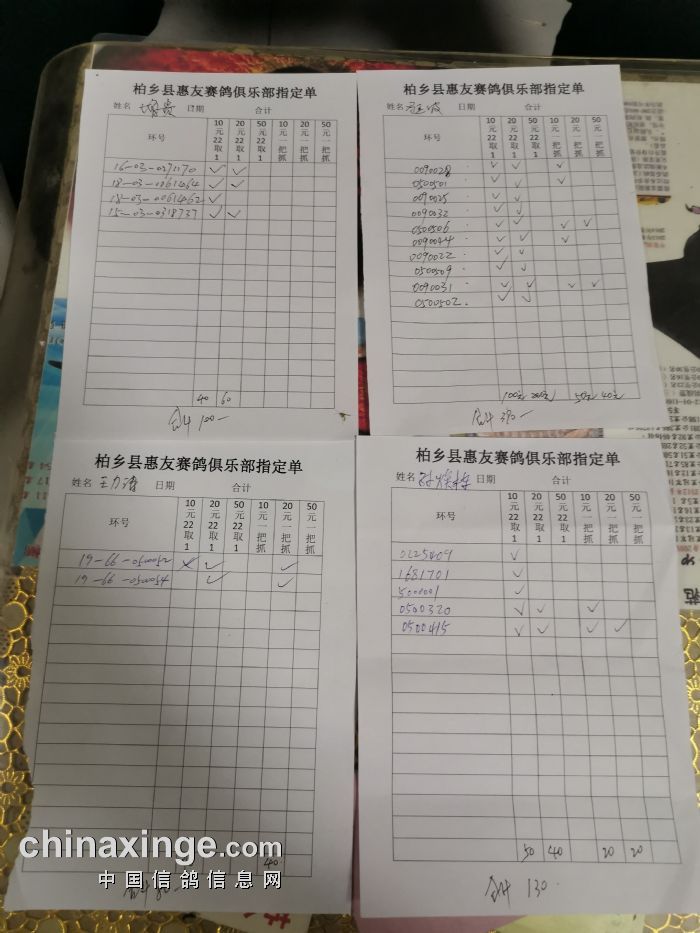 柏乡县惠友赛鸽俱乐部指定单
姓名 日期 合计
环号 10元22取1 20元22取1 50元22取1 10元一把抓 20元一把抓 50元一把抓
16-03-0291170 ✓ ✓
18-03-0061464 ✓ ✓
18-03-0061462 ✓
15-03-0318737 ✓ ✓
40 60
合计 100-
柏乡县惠友赛鸽俱乐部指定单
姓名 日期 合计
环号 10元22取1 20元22取1 50元22取1 10元一把抓 20元一把抓 50元一把抓
0090028 ✓ ✓ ✓
0500501 ✓ ✓ ✓
0090025 ✓ ✓
0090032 ✓ ✓
0500506 ✓ ✓ ✓ ✓
0090044 ✓ ✓ ✓
0090022 ✓ ✓
0500509 ✓ ✓
0090031 ✓ ✓ ✓ ✓
0500502 ✓ ✓
100元 200元 50元 40元
合计 390-
柏乡县惠友赛鸽俱乐部指定单
姓名 日期 合计
环号 10元22取1 20元22取1 50元22取1 10元一把抓 20元一把抓 50元一把抓
19-66-0500052 ✓ ✓
19-66-0500054 ✓ ✓
40
合计 80-
柏乡县惠友赛鸽俱乐部指定单
姓名 日期 合计
环号 10元22取1 20元22取1 50元22取1 10元一把抓 20元一把抓 50元一把抓
0225409 ✓
1681701 ✓
500001 ✓
0500320 ✓ ✓ ✓
0500415 ✓ ✓ ✓ ✓
50 40 20 20
合计 130-
chinaxinge.com
中国信鸽信息网